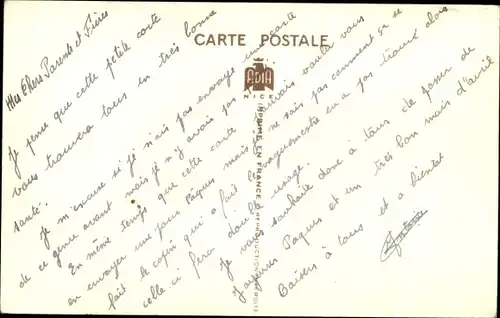 Mes Chers Parents et Frères
CARTE POSTALE
ADIA
NICE
IMPRIMÉ EN FRANCE
REPRODUCTION
Je pense que cette petite carte
vous trouvera tous en très bonne
santé.
Je m'excuse si je n'ai pas envoyé une carte
de ce genre avant mais je n'y avais pas
En même temps que cette carte j'aurais voulu vous
en envoyer une pour Pâques mais je ne sais pas comment ça se
fait le copin qui a fait la en a pas trouvé alors
celle-ci fera double usage.
Je vous souhaite donc à tous de passer de
Joyeuses Pâques et un très bon mois d'avril
Baisers à tous et à bientôt